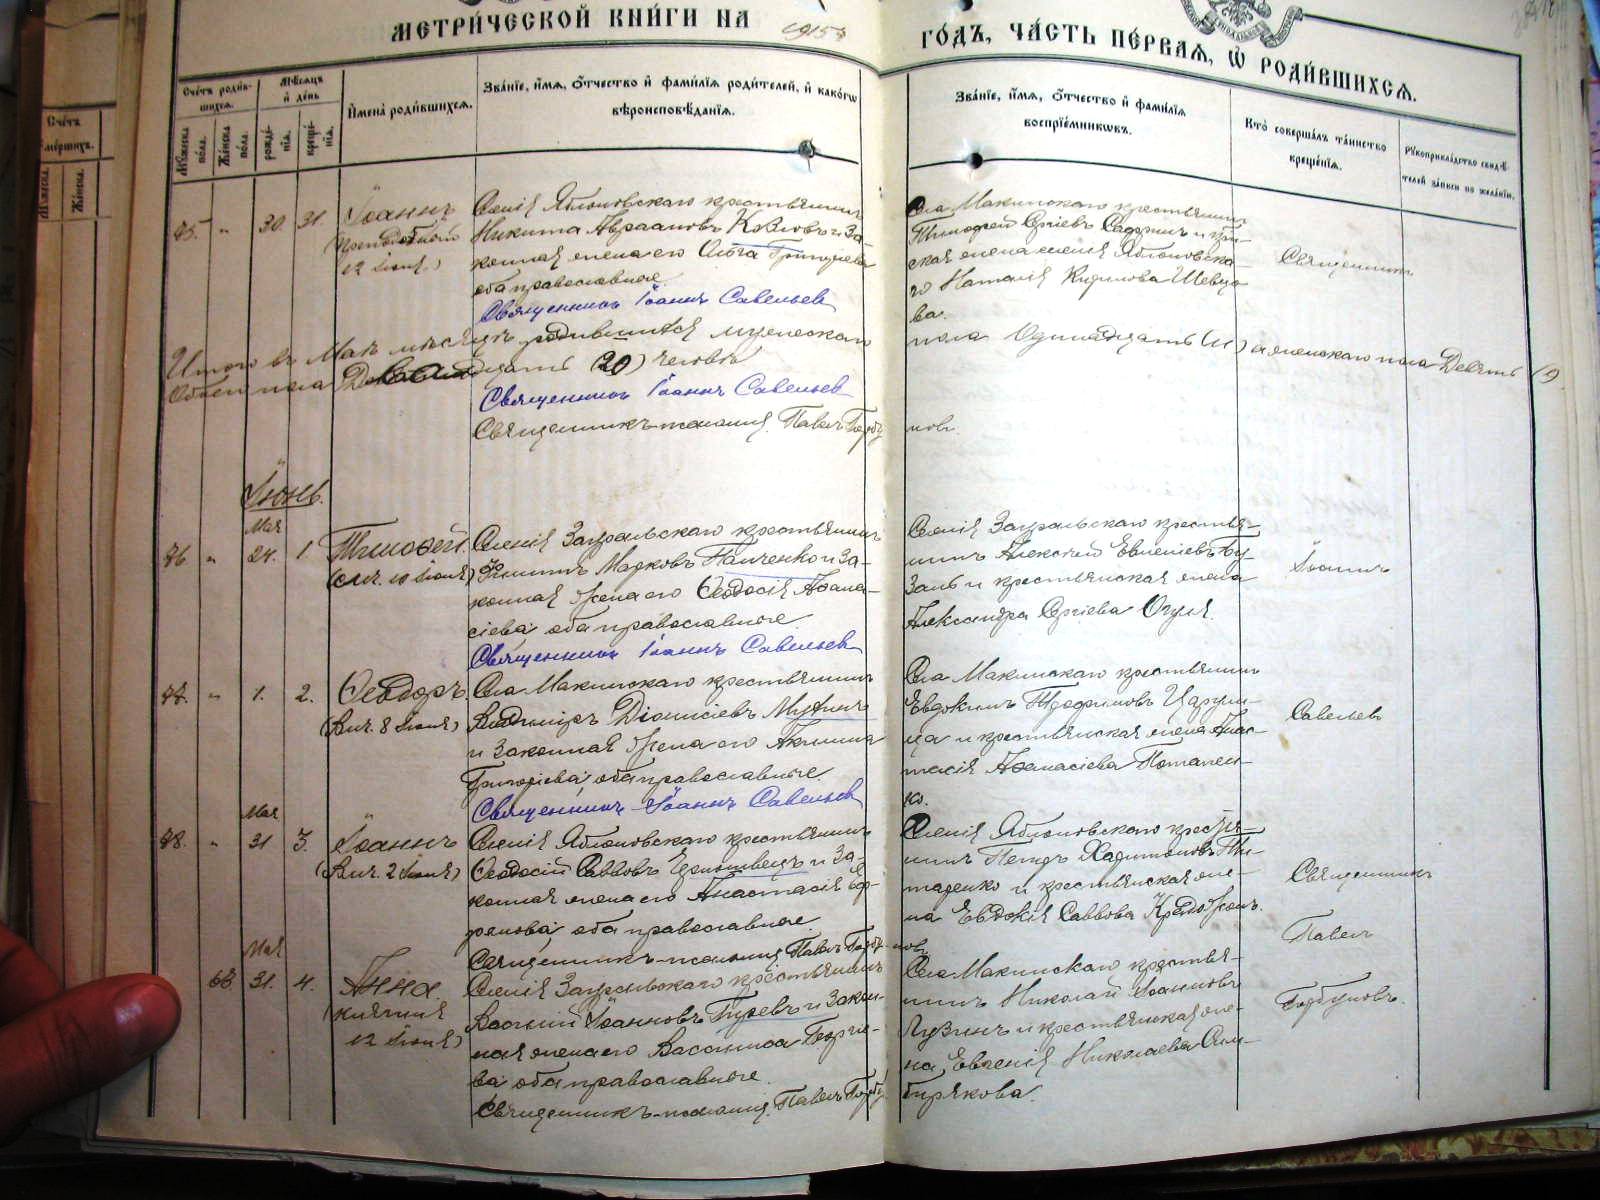 МЕТРИ́ЧЕСКОЙ КНИ́ГИ НА 1915й ГО́ДЪ, ЧА́СТЬ ПЕ́РВАЯ, Ѡ РОДИ́ВШИХСЯ.
Сче́тъ роди́в-
шихся.
Му́жеска по́ла.
Же́нска по́ла.
Мѣ́сяцъ
и де́нь
рожде́-
нія.
креще́-
нія.
И́мена роди́вшихся.
Зва́ніе, и́мя, о́тчество и фами́лія роди́телей, и како́гѡ
вѣроисповѣ́данія.
Зва́ніе, и́мя, о́тчество и фами́лія
воспріе́мникѡвъ.
Кто̀ соверша́лъ та́инство
креще́нія.
Рукоприкла́дство свидѣ́-
телей за́писи по жела́нію.
Сче́тъ
умершихъ.
Мужеска.
Женска.
75. " 30. 31. Іоаннъ
(преподобный
12 Іюня)
Селенія Яблоновскаго крестьянинъ
Никита Авраамовъ Козловъ и за-
конная жена его Ольга Григориева
оба православные.
Священникъ Іоаннъ Савельев
Села Макинскаго крестьянинъ
Тимофей Сергіевъ и кресть-
ская жена селенія Яблоновска-
го Наталія Кирилова Шевцо-
ва.
Священникъ
Итого въ Маѣ мѣсяцѣ родившихся мужескаго
пола Одинадцать (11) и женскаго пола Девять (9)
Обоего пола Двадцать (20) человѣкъ
Священникъ Іоаннъ Савельев
Священникъ-псаломщ. Павелъ Горбу
новъ.
Іюнь.
Мая
76 " 24. 1. Тимофей.
(Апт. 10 Іюня)
Селенія Загральскаго крестьянинъ
Филиппъ Марковъ Панченко и за-
конная жена его Ѳеодосія Афана-
сіева, оба православные.
Священникъ Іоаннъ Савельев
Селенія Загральскаго крестья-
нинъ Алексѣй Евменіевъ Бу-
заль и крестьянская жена
Александра Сергіева Огуля.
Іоаннъ
77. " 1. 2. Ѳеодоръ.
(Вмч. 8 Іюня)
Села Макинскаго крестьянинъ
Владиміръ Діонисіевъ
и законная жена его Акилина
Григоріева, оба православные.
Священникъ Іоаннъ Савельев
Села Макинскаго крестьянинъ
Евдокимъ Трофимовъ Царули-
ца и крестьянская жена Анас-
тасія Афанасіева Потапен-
ко.
Савельевъ
Мая
78. " 31 3. Іоаннъ
(Вмч. 2 Іюня)
Селенія Яблоновскаго крестьянинъ
Ѳеодосій Саввовъ и за-
конная жена его Анастасія Еф-
ремова, оба православные.
Священникъ-псаломщ. Павелъ Горбуновъ
Селенія Яблоновскаго крестья-
нинъ Петръ Харитоновъ Ти-
таренко и крестьянская же-
на Евдокія Саввова
Священникъ
Павелъ
Мая
68 31. 4. Анна.
(княгиня
12 Іюня)
Селенія Загральскаго крестьянинъ
Василій Іоанновъ Гусевъ и закон-
ная жена его Васса Георгие-
ва оба православные.
Священникъ-псаломщ. Павелъ Горбу
Села Макинскаго крестья-
нинъ Николай Іоанновъ
Лузинъ и крестьянская же-
на, Евгенія Николаева
бирякова.
Горбуновъ.